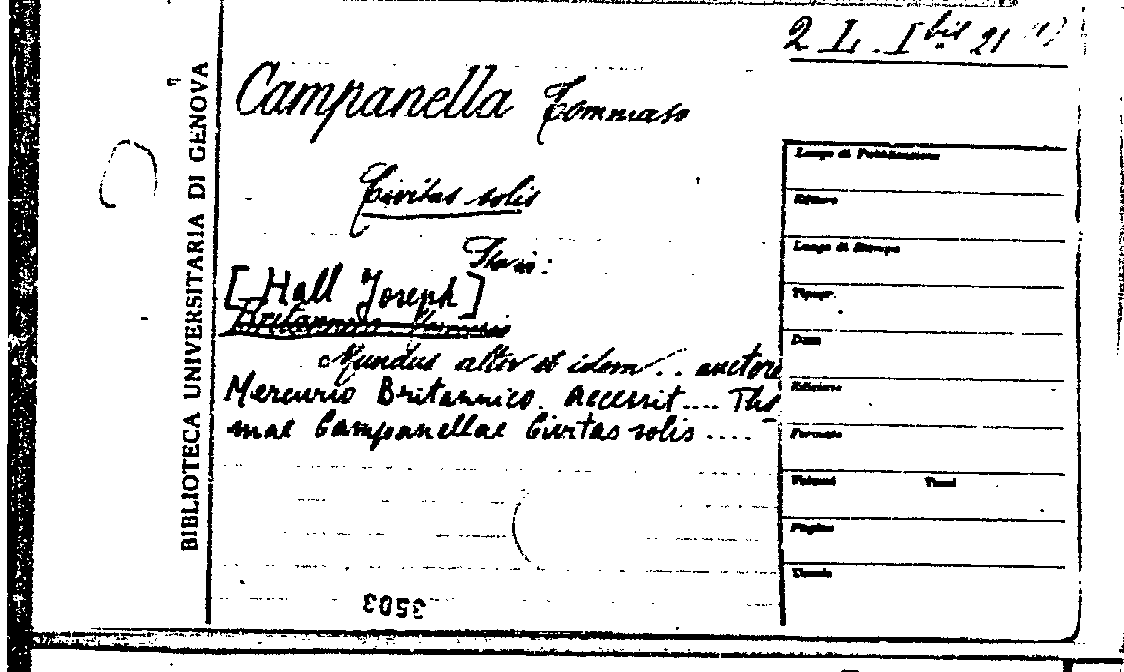 2 L. I bis 21 (1)
BIBLIOTECA UNIVERSITARIA DI GENOVA
Campanella Tommaso
Civitas solis
Sta in:
[Hall Joseph]
Britannico Mercurio
Mundus alter et idem... auctore
Mercurio Britannico. Accessit.... Tho
mae Campanellae Civitas solis....
Luogo di Pubblicazione
Editore
Luogo di Stampa
Tipogr.
Data
Edizione
Formato
Volumi Tomi
Pagine
Tavole
3503